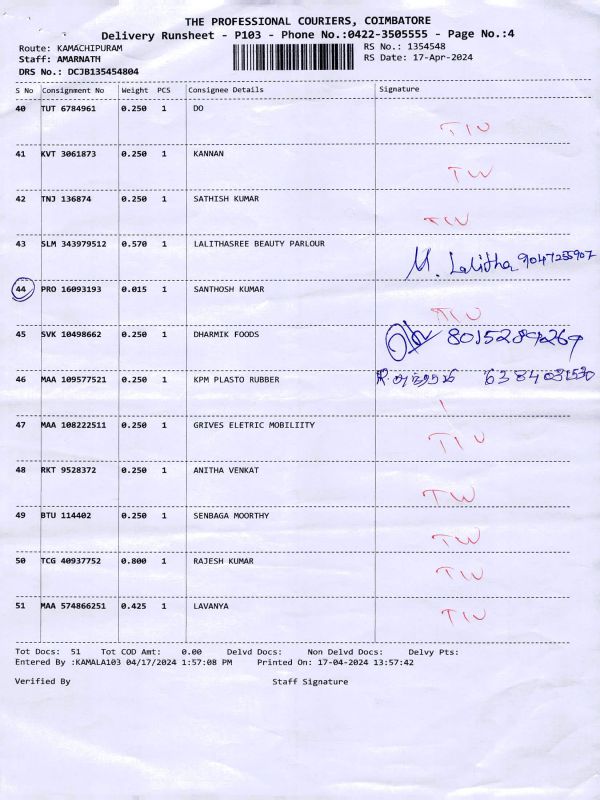 THE PROFESSIONAL COURIERS, COIMBATORE
Delivery Runsheet - P103 - Phone No.:0422-3505555 - Page No.:4
Route: KAMACHIPURAM RS No.: 1354548
Staff: AMARNATH RS Date: 17-Apr-2024
DRS No.: DCJB135454804
S No Consignment No Weight PCS Consignee Details Signature
40 TUT 6784961 0.250 1 DO
TIW
41 KVT 3061873 0.250 1 KANNAN
TW
42 TNJ 136874 0.250 1 SATHISH KUMAR
TIW
43 SLM 343979512 0.570 1 LALITHASREE BEAUTY PARLOUR
M. Lalitha 9047255907
44 PRO 16093193 0.015 1 SANTHOSH KUMAR
TIW
45 SVK 10498662 0.250 1 DHARMIK FOODS
8015289269
46 MAA 109577521 0.250 1 KPM PLASTO RUBBER
6384031530
47 MAA 108222511 0.250 1 GRIVES ELETRIC MOBILIITY
TIW
48 RKT 9528372 0.250 1 ANITHA VENKAT
TW
49 BTU 114402 0.250 1 SENBAGA MOORTHY
TW
50 TCG 40937752 0.800 1 RAJESH KUMAR
TIW
51 MAA 574866251 0.425 1 LAVANYA
TIW
Tot Docs: 51 Tot COD Amt: 0.00 Delvd Docs: Non Delvd Docs: Delvy Pts:
Entered By :KAMALA103 04/17/2024 1:57:08 PM Printed On: 17-04-2024 13:57:42
Verified By Staff Signature